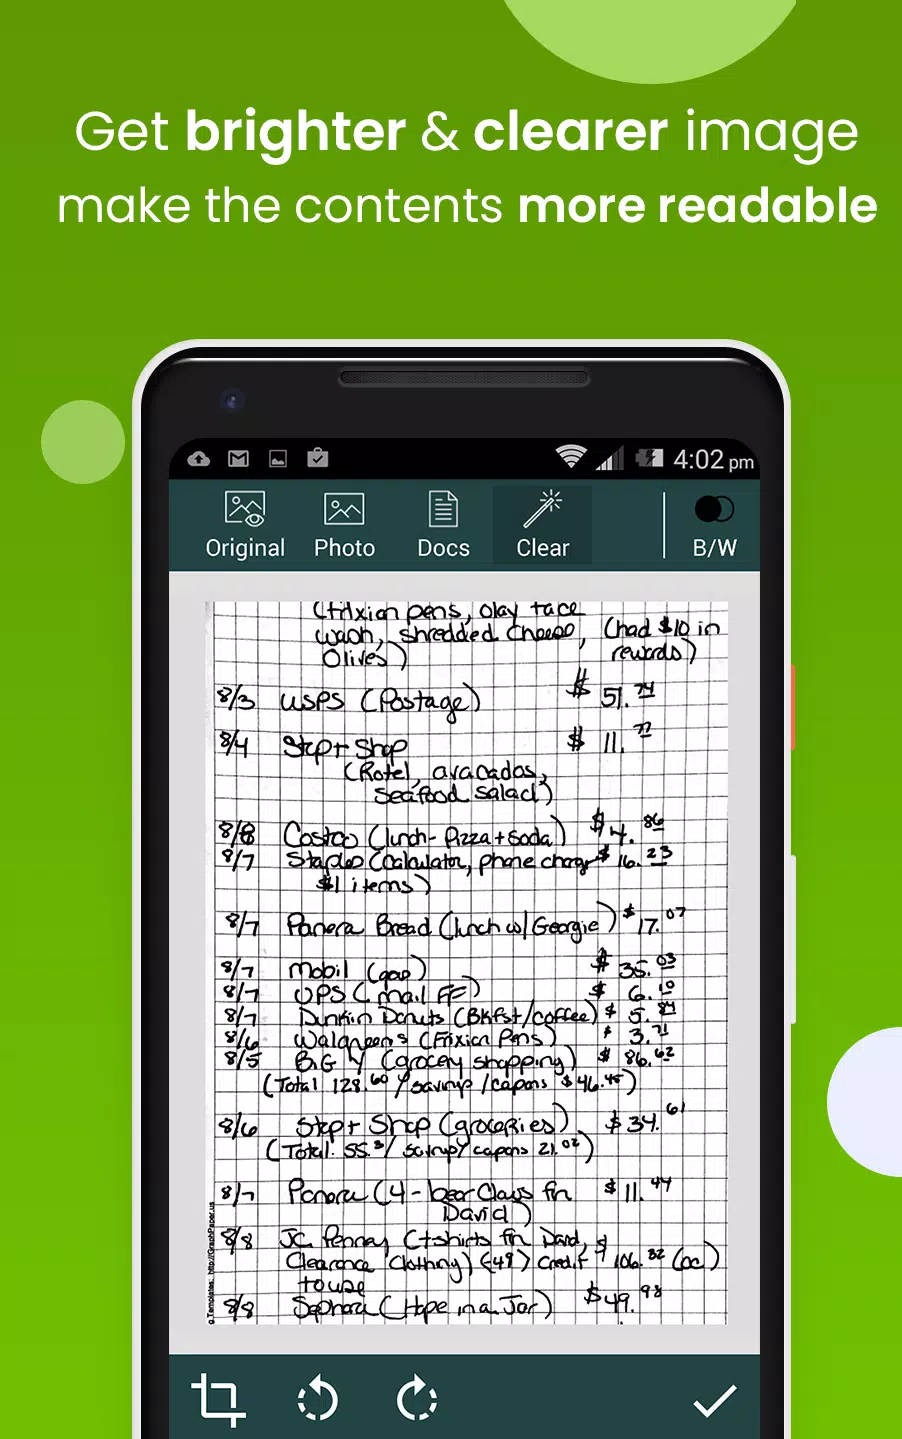 Get brighter & clearer image
make the contents more readable
4:02 pm
Original Photo Docs Clear B/W
(frixion pens, olay face
wash, shredded cheese, (had $10 in
Olives) rewards)
8/3 USPS (Postage) $ 51.74
8/4 Stop + Shop $ 11.77
(Rotel, avacados,
seafood salad)
8/8 Costco (lunch - Pizza + soda) $ 4.86
8/7 Staples (calculator, phone charger $ 16.23
$1 items)
8/7 Panera Bread (lunch w/ Georgie) $ 17.07
8/7 Mobil (gas) $ 35.03
8/7 UPS (mail FF) $ 6.10
8/7 Dunkin Donuts (Bkfst/coffee) $ 5.84
8/6 Walgreens (Frixion Pens) $ 3.71
8/5 BiG Y (grocery shopping) $ 86.62
(Total 128.60 / savings / capons $46.45)
8/6 Stop + Shop (groceries) $ 34.61
(Total: 55. / savings / capons 21.02)
8/7 Panera (4 - bear claws for $ 11.44
David)
8/8 JC Penney (t-shirts for David, $
Clearance Clothing) (-49) credit 106.82 (oc)
to use
8/8 Sephora (Hope in a Jar) $49.98
Templates: http://GraphPaper.us